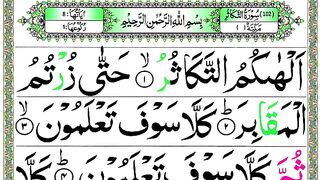 (102) سُوْرَةُ التَّكَاثُرِ
بِسْمِ اللّٰهِ الرَّحْمٰنِ الرَّحِيْمِ
اَلْهٰىكُمُ التَّكَاثُرُ ۙ۝۱ حَتّٰى زُرْتُمُ
الْمَقَابِرَ ؕ۝۲ كَلَّا سَوْفَ تَعْلَمُوْنَ ۙ۝۳
ثُمَّ كَلَّا سَوْفَ تَعْلَمُوْنَ ؕ۝۴ كَلَّا